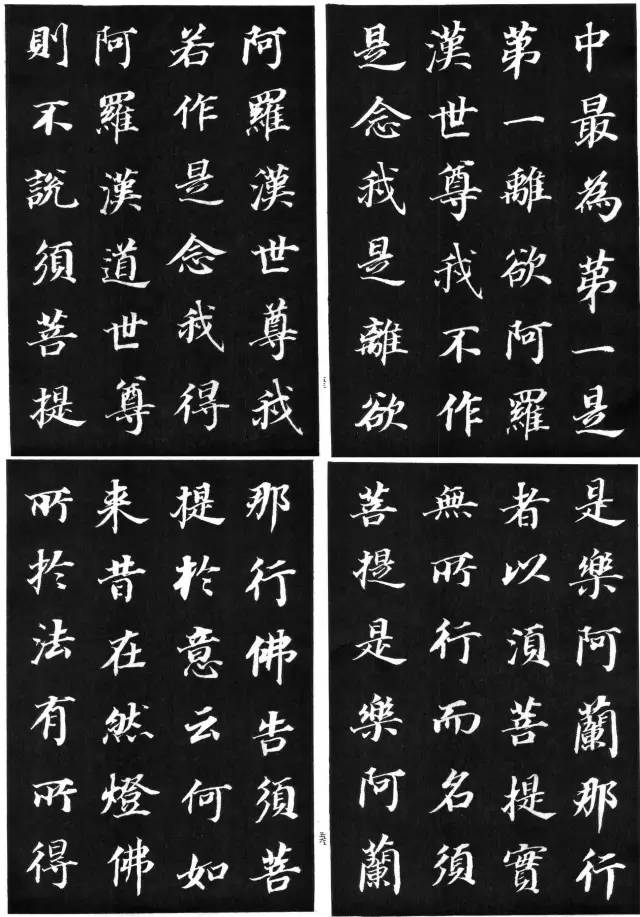 中最為第一是
第一離欲阿羅
漢世尊我不作
是念我是離欲
阿羅漢世尊我
若作是念我得
阿羅漢道世尊
則不說須菩提
是樂阿蘭那行
者以須菩提實
無所行而名須
菩提是樂阿蘭
那行佛告須菩
提於意云何如
来昔在然燈佛
所於法有所得